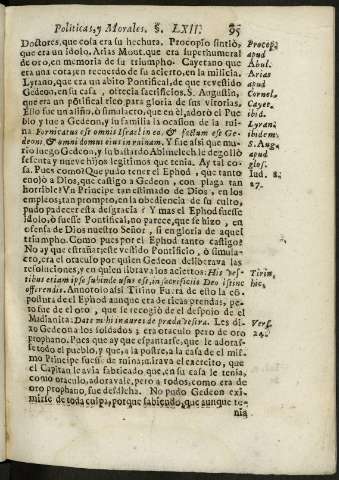 Politicas, y Morales. §. LXII. 95
Doctores, que cosa era su hechura. Procopio sintiò, Procop.
que era un idolo, Arias Mont. que era superhumeral apud
de oro, en memoria de su triumpho. Cayetano que Abul.
era una cota, en recuerdo de su acierto, en la milicia. Arias
Lyrano, que era un abito Pontifical, de que revestido Cornel.
Gedeon, en su casa, ofrecia sacrificios. S. Augustin, Cayet.
que era un põtifical rico para gloria de sus vitorias. ibid.
Ello fue un assiño, ò simulacro, que en èl, adorò el Pue- Lyran.
blo y fue a Gedeon, y su familia la ocasion de la rui- ibidem.
na Fornicatus est omnis Israel in eo, & factum est Ge- S. Aug.
deoni, & omni domui eius in ruinam. Y fue assi que mu- apud
rio luego Gedeon, y su bastardo Abimelech le degollò glos.
sesenta y nueve hijos legitimos que tenia. Ay tal co- Iud. 8.
sa. Pues como? Que pudo tener el Ephod, que tanto 27.
enojò a Dios, que castigo a Gedeon, con plaga tan
horrible? Un Principe tan estimado de Dios, en los
empleos, tan prompto, en la obediencia de su culto,
pudo padecer esta desgracia? Y mas el Ephod fuesse
idolo, ò fuesse Pontifical, no parece, que se hizo, en
ofensa de Dios nuestro Señor, si en gloria de aquel
triumpho. Como pues por el Ephod tanto castigo?
No ay que estrañar este vestido Pontificio, ò simula-
cro, era el oraculo por quien Gedeon deliberava las
resoluciones, y en quien librava los aciertos: His ves- Tirin,
tibus etiam ipse subinde usus est, in sacrificiis Deo istinc hic,
offerendis. Annotoio assi Tirino. Fuera de esto la cõ-
postura de el Ephod aunque era de ricas prendas, pe-
ro fue de el oro, que se recogiò de el despojo de el
Madianita: Date mihi inaures de præda vestra. Les di- Vers.
xo Gedeon a los soldados; era oraculo pero de oro 24.
prophano. Pues que ay que espantarse, que le adoras-
se todo el pueblo, y que, a la postre, a la casa de el mis-
mo Principe fuesse de ruina; mirava el exercito, que
el Capitan le avia fabricado que, en su casa le tenia,
como oraculo, adoravale, pero a todos, como era de
oro prophano, fue desdicha. No pudo Gedeon exi-
mirse de toda culpa, porque sabiendo, que aunque te-
nia